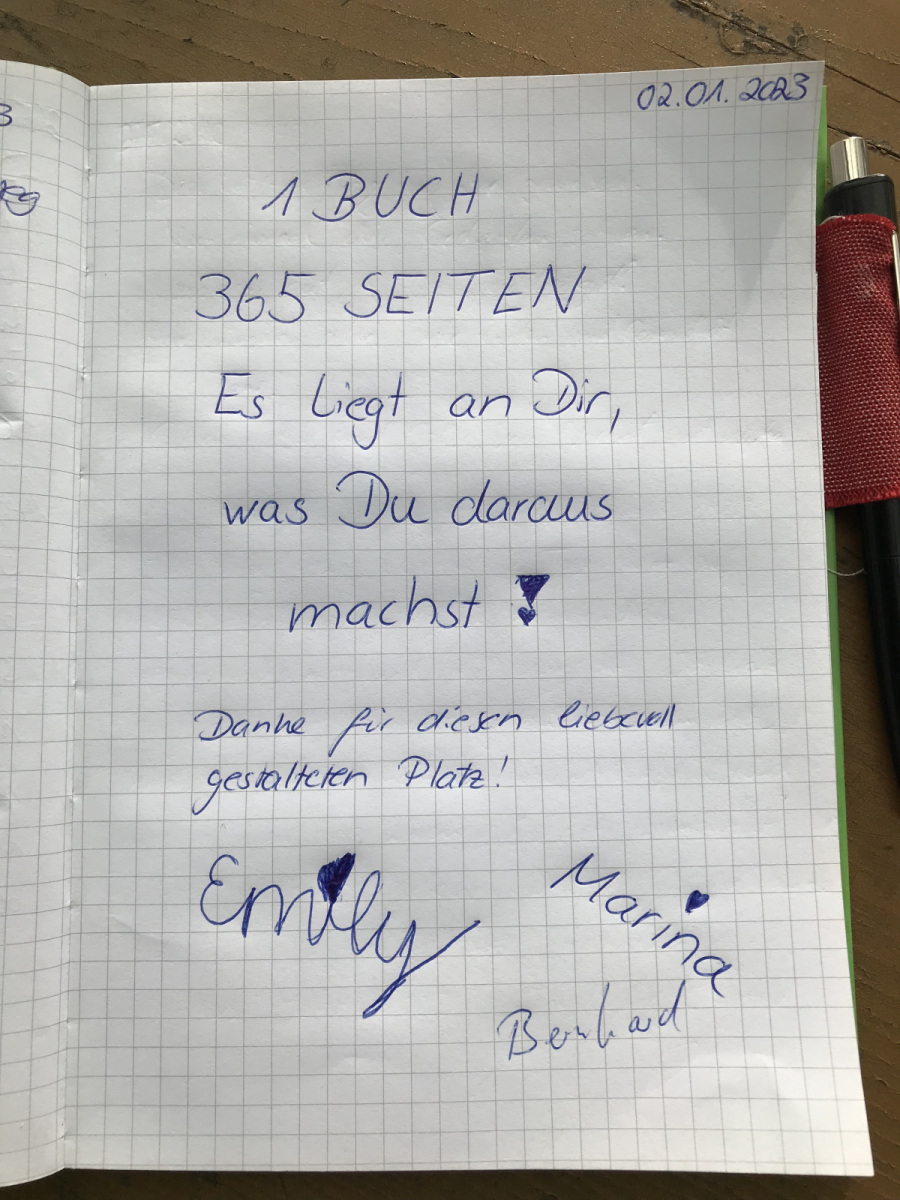 02.01.2023
1 BUCH
365 SEITEN
Es liegt an Dir,
was Du daraus
machst !
Danke für diesen liebevoll
gestalteten Platz!
Emily
Marina
Bernhard